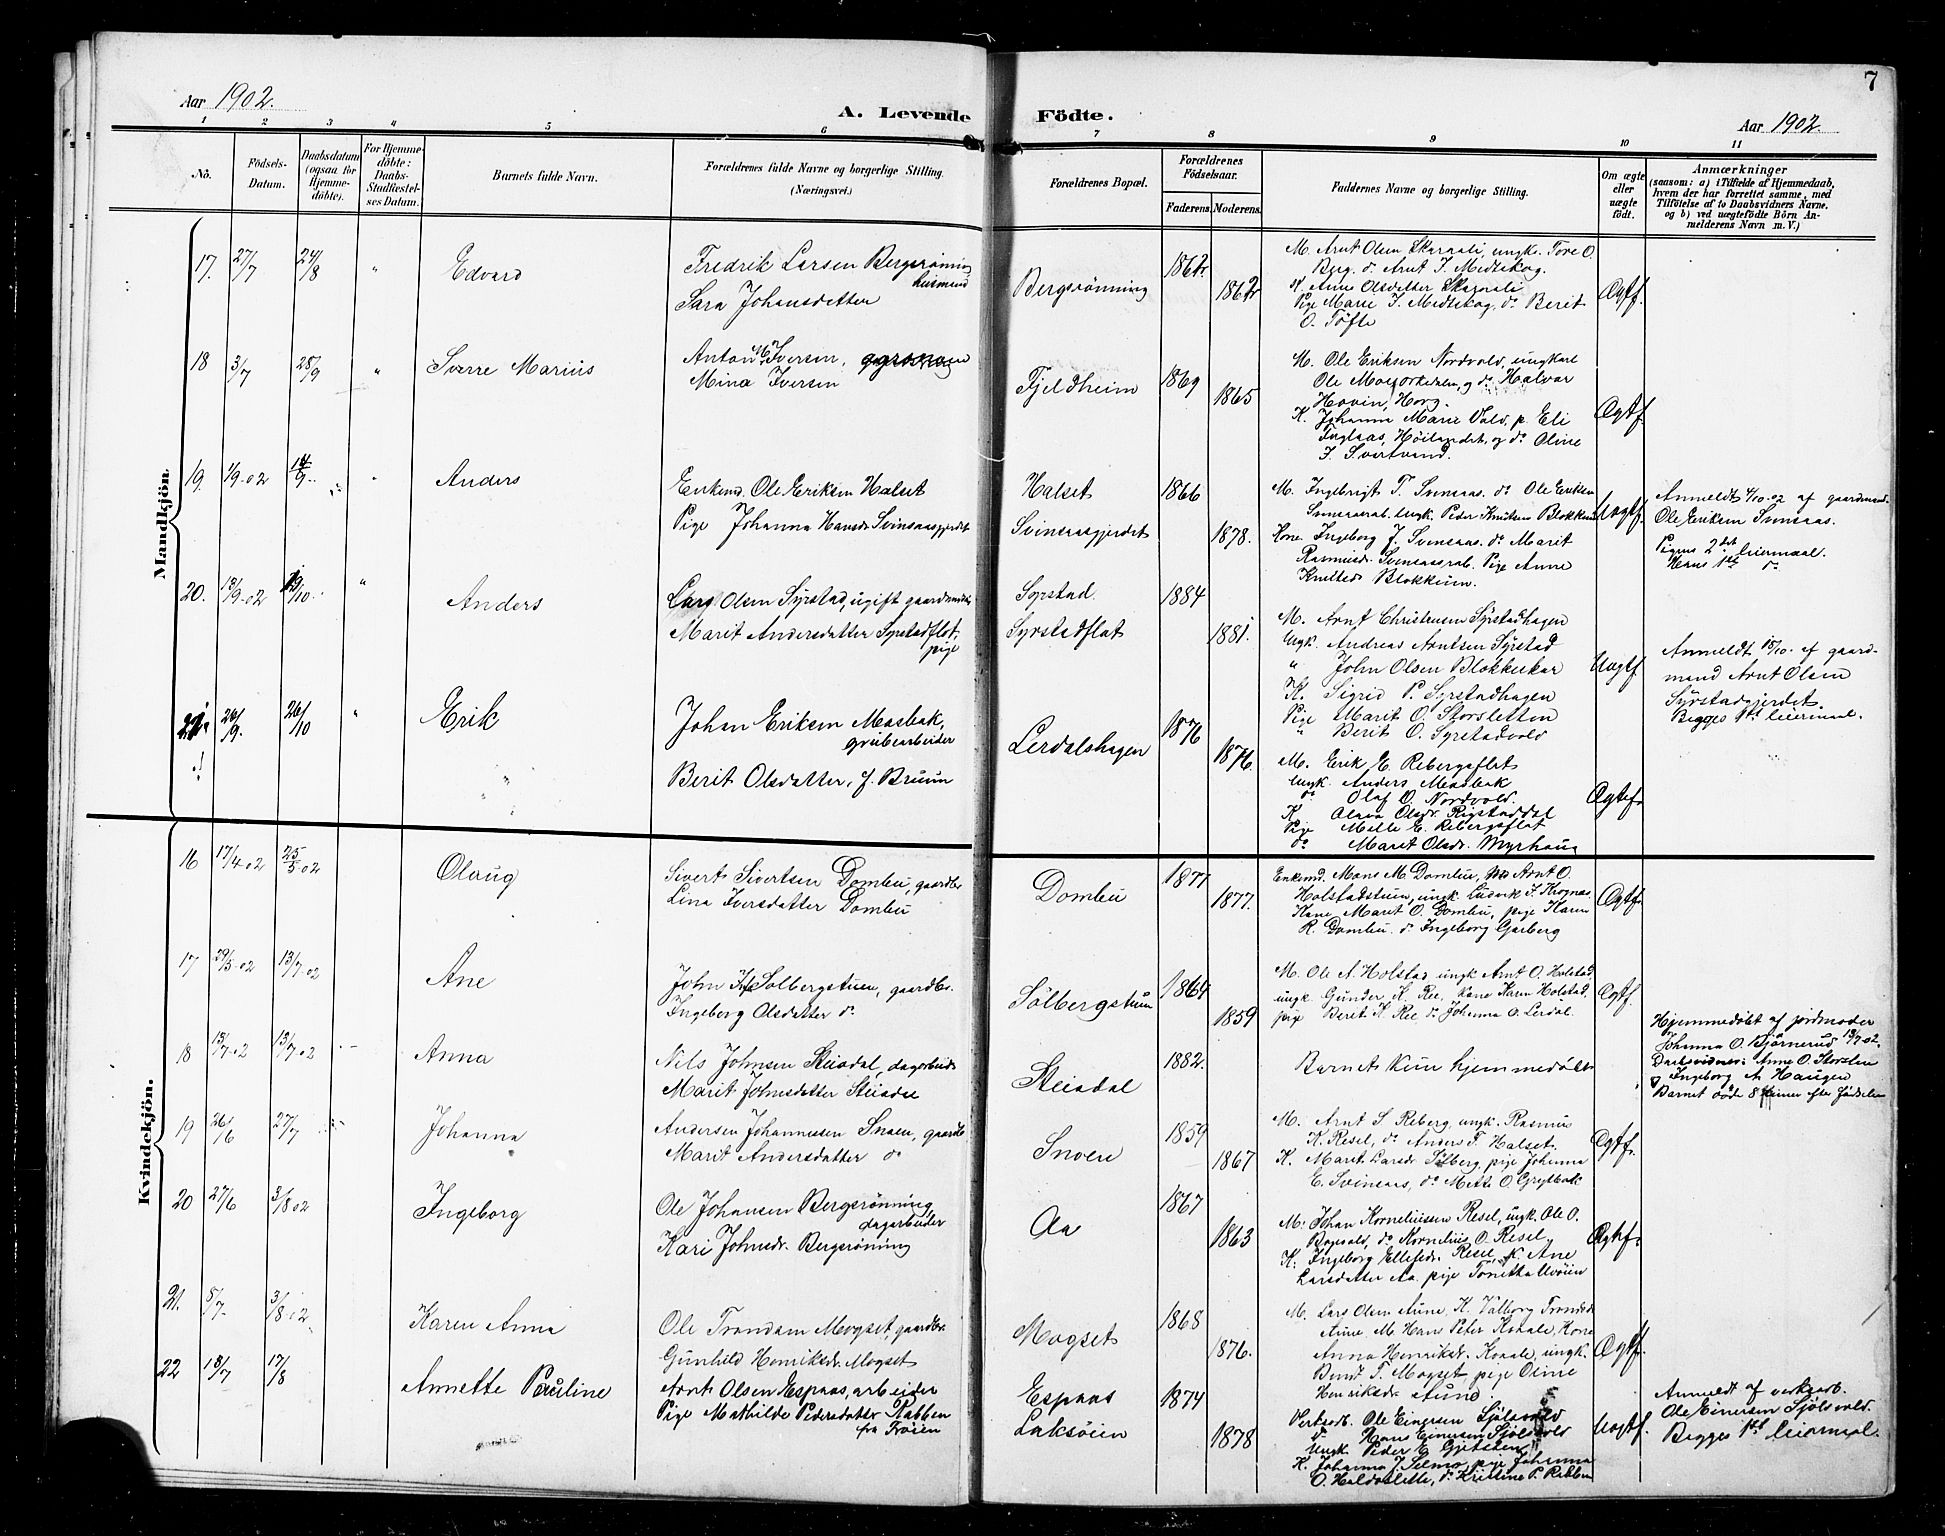 7
Aar 1902.
A. Levende
Födte.
Aar 1902
1 2 3 4 5 6 7 8 9 10 11
No.
Födsels-
Datum.
Daabsdatum
(ogsaa for
Hjemme-
döbte).
For Hjemme-
döbte:
Daabs-
Stadfæstel-
ses Datum.
Barnets fulde Navn.
Forældrenes fulde Navne og borgerlige Stilling.
(Næringsvei.)
Forældrenes Bopæl.
Forældrenes
Födselsaar.
Faderens. Moderens.
Faddernes Navne og borgerlige Stilling.
Om ægte
eller
uægte
födt.
Anmærkninger
(saasom: a) i Tilfælde af Hjemmedaab,
hvem der har forrettet samme, med
Tilföielse af to Daabsvidners Navne.
og b) ved uægtefödte Börn An-
melderens Navn m. V.)
Mandkjön.
17. 27/7 24/8 " Edvard
Fredrik Larsen Bergsrönning
husmand
Sara Johansdatter
Bergsrönning
1862 1862
M. Arnt Olsen Skaraali, ungk. Tore O.
Berg. do Arnt J. Medtskog.
K. Anne Olsdatter Skaraali
Pige Marie J. Medtskog, do Berit
O. Töfte
Ægtf.
18 3/7 28/9 " Sverre Marius
Anton M. Iversen,
Mina Iversen
Fjeldheim
1869 1865
M. Ole Eriksen Nordvold, ungkarl
Ole, og do Halvar
Hovin, Horg.
K. Johanna Marie Vold, p. Eli
Høilandet, og do Oline
J. Svartvand.
Ægtf.
19. 1/9-02 14/9 " Anders
Enkemd. Ole Eriksen Halset
Pige Johanna Hansdr Svinsaasgjerdet
Halset
Svinsaasgjerdet
1866 1878.
M. Ingebrigt T. Svinsaas. do Ole Eriksen
Svinsaasrab. Ungk. Peder Knutsen Blokkum
Kone Ingeborg J. Svensaas. do Marit
Rasmusdr. Svensaasrab. Pige Anne
Knutsdr Blokkum.
Uægtf.
Anmeldt 4/10-02 af gaardmand
Ole Eriksen Svinsaas.
Pigens 2det leiermaal.
Hans 1ste do
20. 13/9-02 19/10 " Anders
Lars Olsen Syrstad, ugift gaardmand
Marit Andersdatter Syrstadflat,
pige
Syrstad.
Syrstadflat
1884 1881.
M. Arnt Christensen Syrstadhagen
Ungk. Andreas Arntsen Syrstad
" John Olsen Blokkeskar
K. Sigrid P. Syrstadhagen
Pige Marit O. Storsletten
" Berit O. Syrstadvold
Uægtf.
Anmeldt 15/10. af gaard-
mand Arnt Olsen
Syrstadgjerdet.
Begges 1ste leiermaal.
21. 26/9. 26/10 " Erik
Johan Eriksen Mosbak,
grubearbeider
Berit Olsdatter, f. Bruum
Lerdalshagen
1876 1876.
M. Erik E. Rebergsflat
Ungk. Anders Mosbak
do Olaf O. Nordvold.
K. Olava Olsdr. Rigstaddal
Pige Melle E. Rebergsflat
do Maret Olsdr. Myrhaug
Ægtef.
Kvindekjön.
16 17/4 02 25/5 02 Olaug
Sivert Sivertsen Dombu, gaardbr.
Lina Iversdatter Dombu
Dombu
1877 1877.
Enkemd. Mons M. Dombu, Arnt O.
Holstadstuen, ungk. Ludvik J. Krognæs
Kone Maret O. Dombu, pige Karen
R. Dombu. do Ingeborg Garberg
Ægtf.
17 29/5-02 13/7-02 Ane
John Solbergstuen, gaardbr.
Ingeborg Olsdatter do
Sölbergstuen
1864 1859
M. Ole A. Holstad ungk Arnt O. Holstad,
ungk. Gunder K. Ree, kone Karen Holstad,
pige Berit K Ree do Johanna O. Lerdal.
Ægtf.
18 13/7-02 13/7-02 Anna
Nils Johnsen Skeiadal, dagarbeider
Marit Johnsdatter
Skeiadal
1882.
Barnet kun hjemmedøbt
Hjemmedøbt af jordmoder
Johanna O. Bjørnerud 13/7-02,
Daabsvidner: Anne O. Storslen
& Ingeborg A. Haugen
Barnet døde 8 timer efter födselen
19 26/6 27/7 Johanna
Andersen Johannesen Snoen, gaardbr.
Marit Andersdatter do
Snoen
1859 1867
M. Arnt S. Reberg, ungk. Rasmus
K. Resel, do Anders T. Halset.
K. Maret Larsdr Sölberg, pige Johanna
E. Svinsaas, do Mette O. Grytbak
Ægtf.
20 27/6 3/8 02 Ingeborg
Ole Johansen Bergsrønning
dagarbeider
Kari Johnsdr. Bergsrønning
Aa
1867 1863
M. Johan Kornelinssen Resel, ungk. Ole O.
Bogevold, do Kornelius O. Resel,
K. Ingeborg Ellefsdr. Resel, K. Ane
Larsdatter Aa. pige
Ægtf.
21. 5/7- 3/8-02 Karen Anna
Ole Trondsen Mogset, gaardbr.
Gunhild Henriksdr. Mogset
Mogset
1868 1876.
M. Lars Olsen Aune, K. Valborg Trondsdr.
Aune M. Hans Peter Kokale, Kone
Anna Henriksdr. Kokale, ungk.
Bendt T. Mogset pige Oline
Henriksdr Aune
Ægtf.
22 18/7 17/8 Annette Pauline
Arnt Olsen Espaas, arbeider
Pige Mathilde Pedersdatter Rabben
fra Fröien
Espaas
Laksöien
1874 1878
Verksarb. Ole Einersen Sjölsvold
do Hans Einersen Sjölsvold
Ungk Peder E Gjetsten
K. Johanna J. Selmo, pige Johanna
O. Haldosletta, do Kristine P. Rabben
Uægtf.
Anmeldt af verksarb.
Ole Einersen Sjölsvold.
Begges 1ste leiermaal.